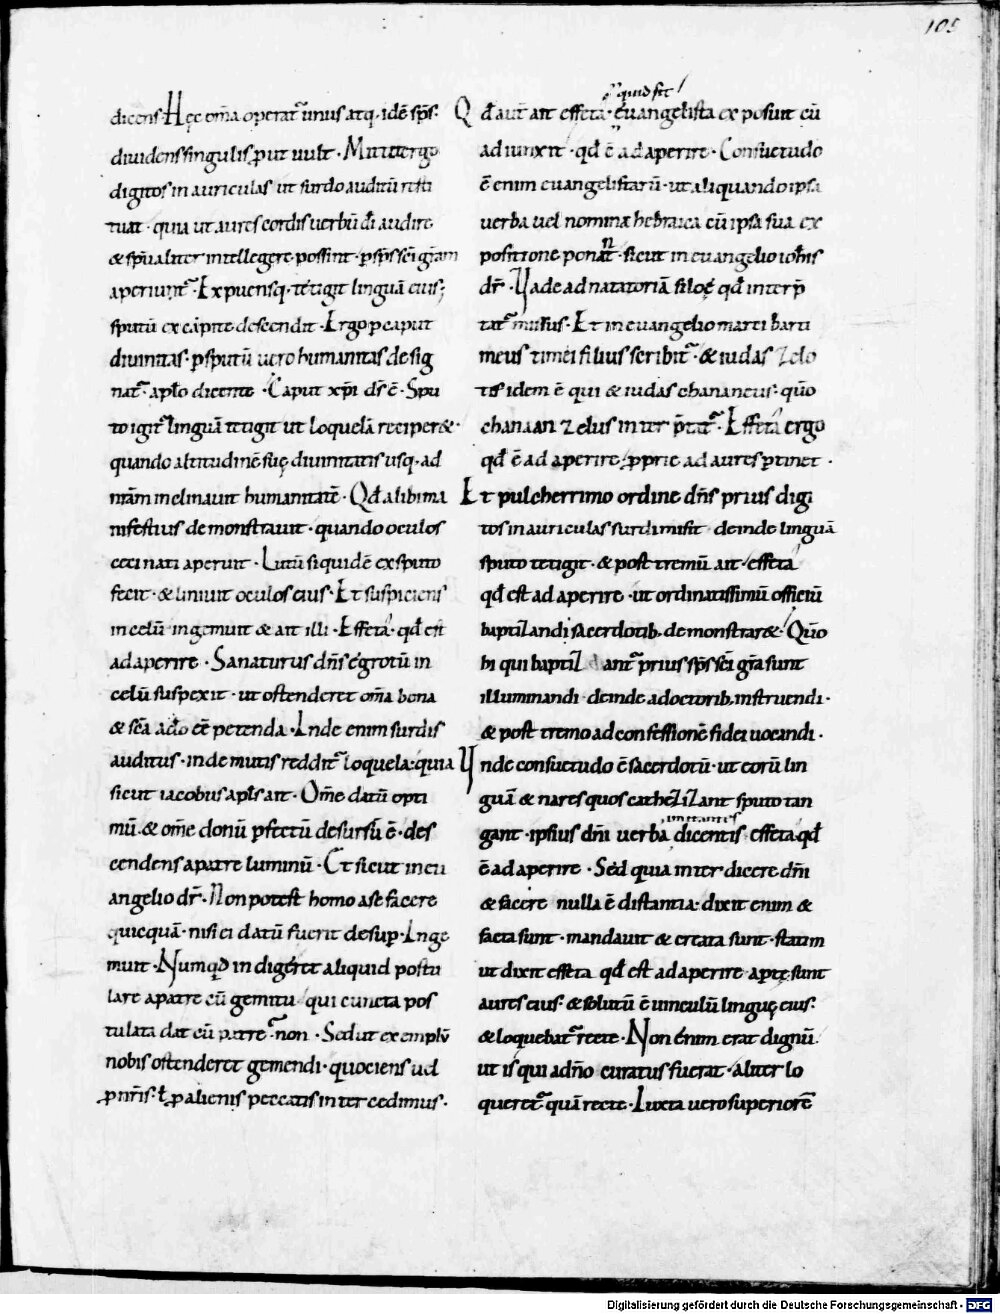 105
dicens· Hęc om̅a operat᷑ unus atq· idē sp̅s·
diuidens singulis ꝓut uult· Mittit ergo
digitos in auriculas ut surdo auditū resti
tuat· quia ut aures cordis uerbū dī audire
& sp̅ualiter intellegere possint· ꝑ sp̅s sc̅i gr̅am
aperiunt᷑· Expuensq· tetigit linguā eius;
sputū ex capite descendit· Ergo ꝑ caput
diuinitas· ꝑ sputū uero humanitas desig
nat᷑· aplo dicente· Caput xp̅i ds̅ ē· Spu
to igit᷑ linguā tetigit ut loquelā reciper&·
quando altitudinē suę diuinitatis usq· ad
nr̅am inclinauit humanitatē· Qd̅ alibi ma
nifestius demonstrauit· quando oculos
ceci nati aperuit· Lutū siquidē ex sputo
fecit· & liniuit oculos eius· Et suspiciens
in celū ingemuit & ait illi· Effeta· qd̅ est
adaperire· Sanaturus dn̅s egrotū in
celū suspexit· ut ostenderet om̅a bona
& sc̅a a do ēē petenda· Inde enim surdis
auditus· inde mutis reddit᷑ loquela· quia
sicut iacobus apls ait· Om̅e datū opti
mū· & om̅e donū ꝑfectū desursū ē· des
cendens a patre luminū· Et sicut in eu
angelio dr̅· Non potest homo a se facere
quicquā· nisi ei datū fuerit desup· Inge
muit· Numqd̅ indigeret aliquid postu
lare a patre cū gemitu qui cuncta pos
tulata dat cū patre· non· Sed ut exemplū
nobis ostenderet gemendi· quociens uel
ꝓ nr̅is· ł ꝓ alienis peccatis intercedimus·
quid sit
Qd̅ aut̅ ait effeta· euangelista exposuit cū
adiunxit· qd̅ ē adaperire· Consuetudo
ē enim euangelistarū· ut aliquando ipsa
uerba uel nomina hebraica cū ipsa sua ex
positione ponant· sicut in euangelio ioh̅is
dr̅· Vade ad natatoriā siloę qd̅ interp̅
tat᷑ missus· Et in euangelio marci barti
meus timei filius scribit᷑· & iudas zelo
tis idem ē qui & iudas chananeus· quō
chanaan zelus interp̅tat᷑· Effeta ergo
qd̅ ē adaperire· ꝓprie ad aures ꝑtinet·
Et pulcherrimo ordine dn̅s prius digi
tos in auriculas surdi misit· deinde linguā
sputo tetigit· & postremū ait· effeta
qd̅ est adaperire· ut ordinatissimū officiū
baptizandi sacerdotib· demonstrar&· Quō
hi qui baptizant᷑ prius sp̅s sc̅i gr̅a sunt
illuminandi· deinde a doctorib· instruendi·
& postremo ad confessionē fidei uocandi·
Vnde consuetudo ē sacerdotū· ut eorū lin
guā & nares quos cathezizant sputo tan
imitantes
gant· ipsius dn̅i uerba dicentis· effeta qd̅
ē adaperire· Sed quia inter dicere dn̅i
& facere nulla ē distantia· dixit enim &
facta sunt· mandauit & creata sunt· statim
ut dixit effeta qd̅ est adaperire aptę sunt
aures eius· & solutū ē uinculū linguę eius·
& loquebat᷑ recte· Non enim erat dignū
ut is qui a dn̅o curatus fuerat· aliter lo
queret᷑ quā recte· Iuxta uero superiorē
Digitalisierung gefördert durch die Deutsche Forschungsgemeinschaft - DFG